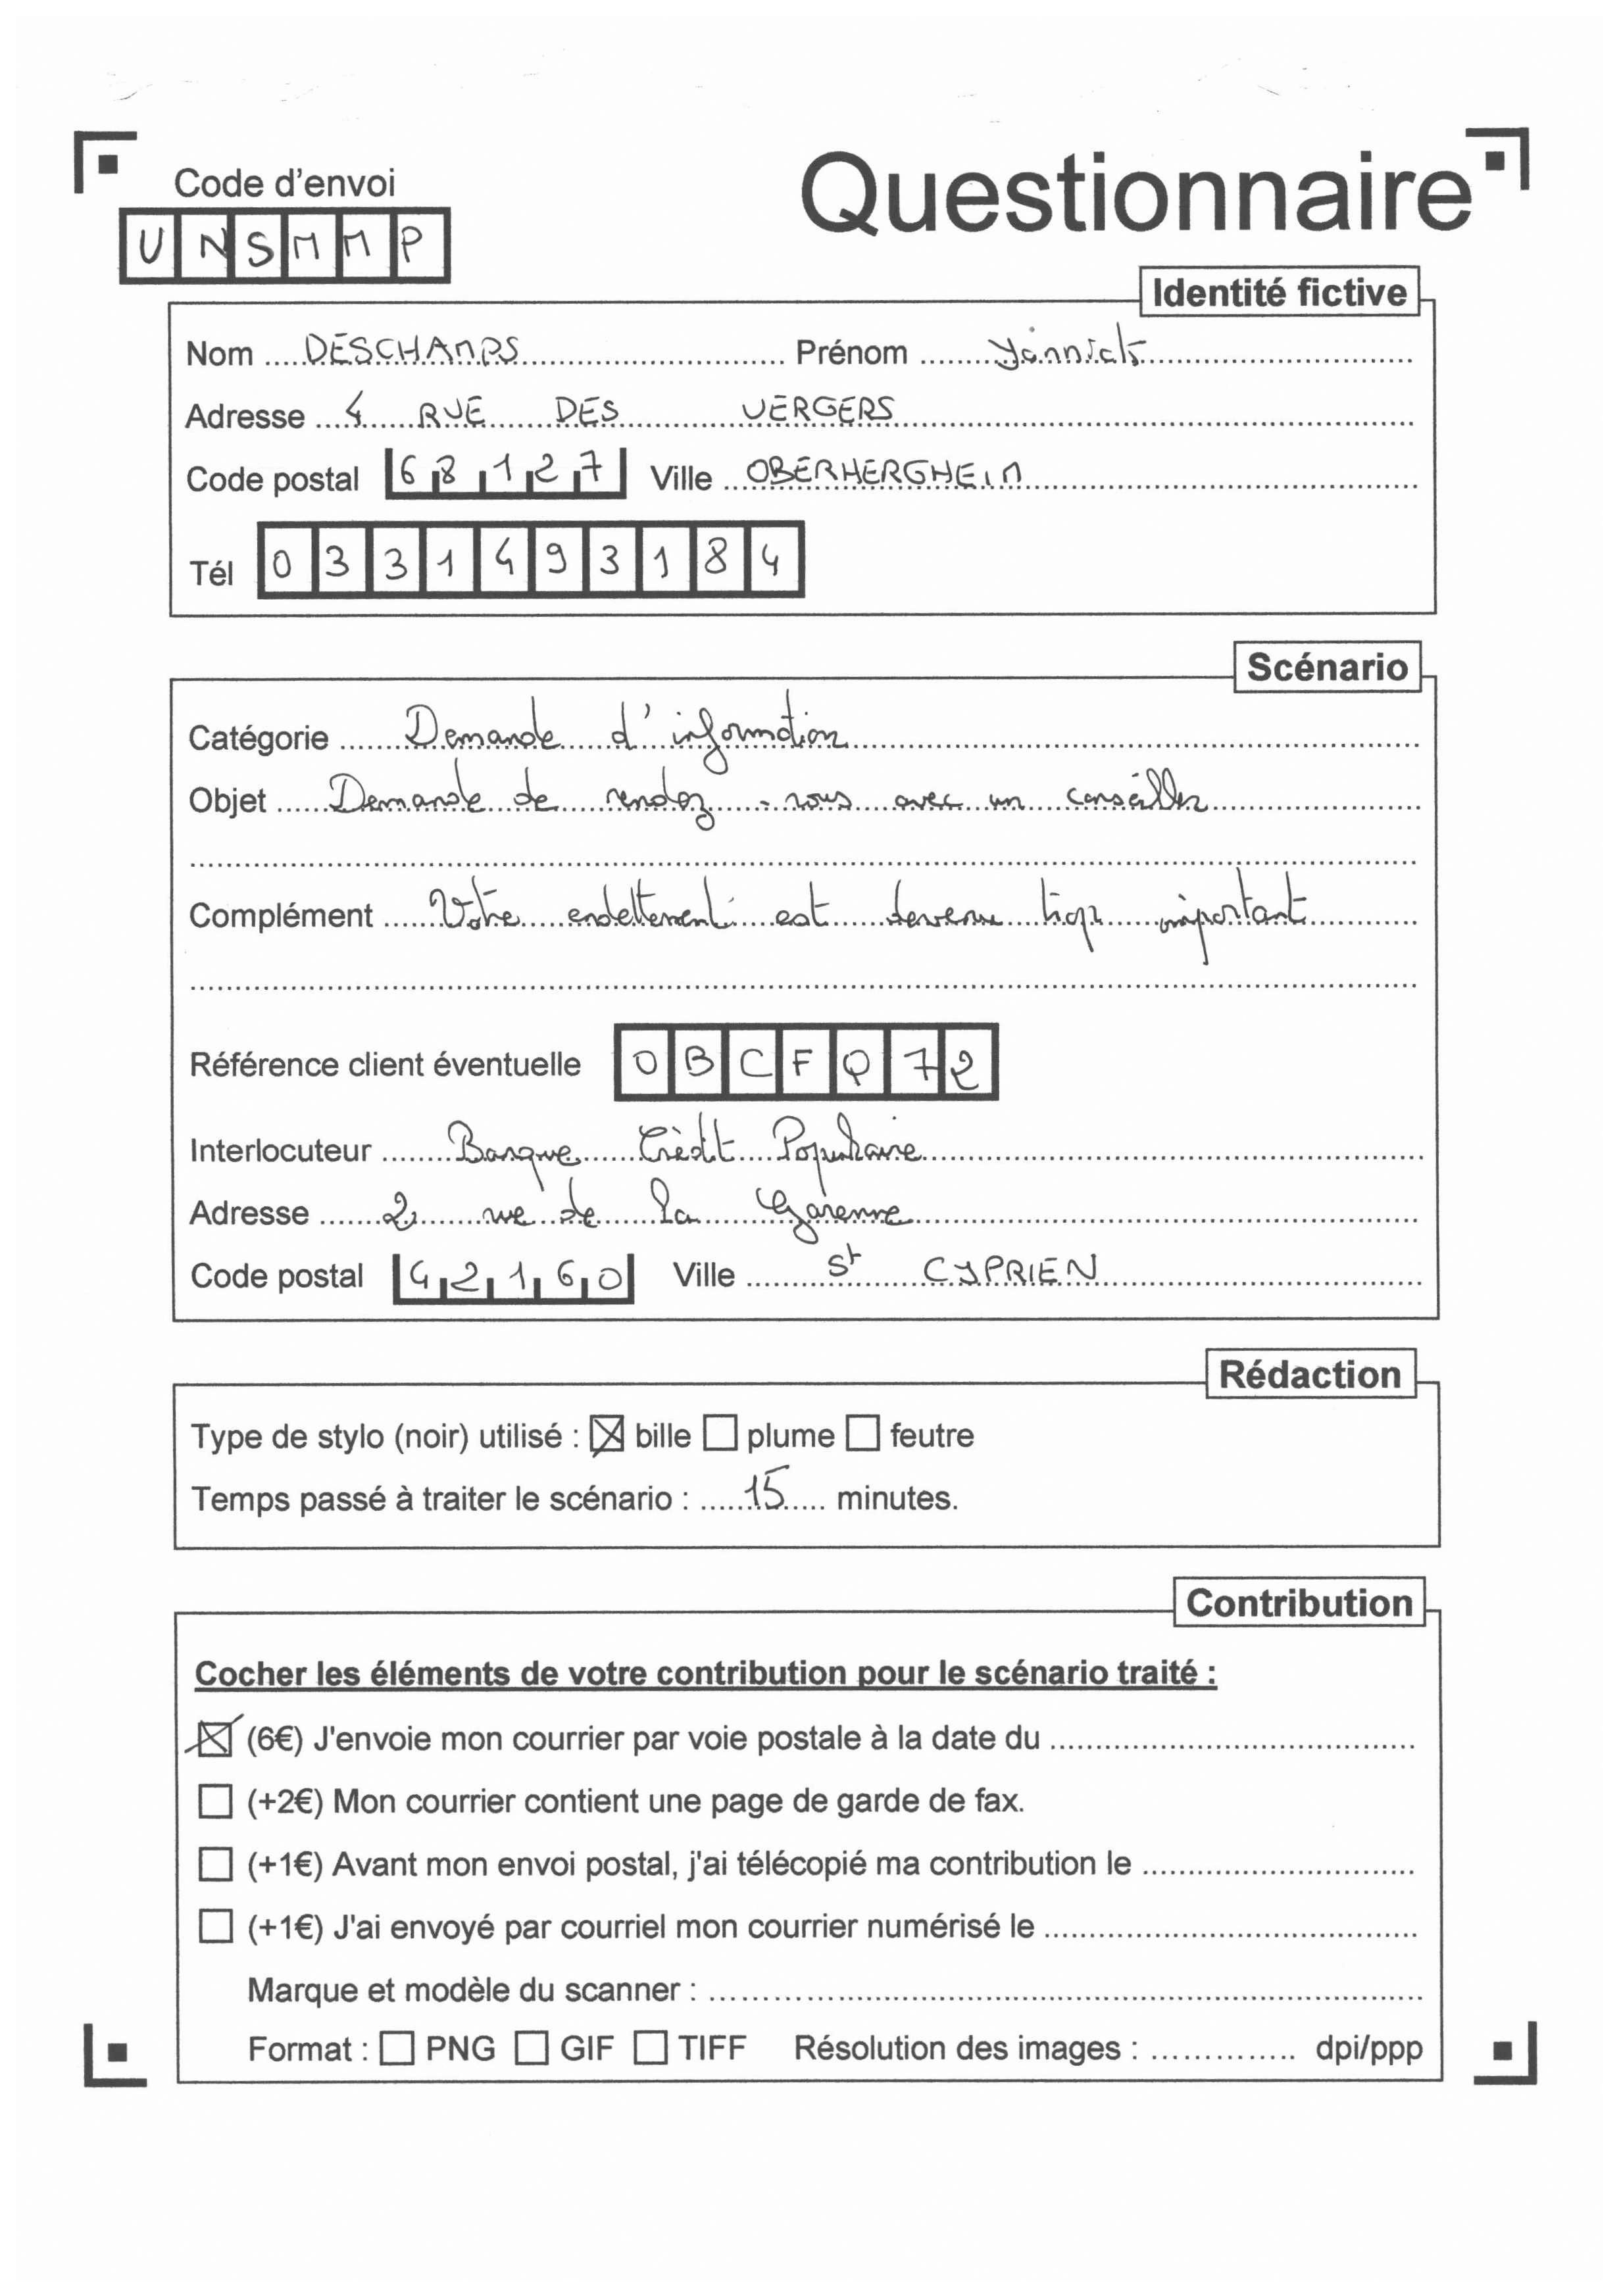 Code d'envoi
Questionnaire
UNSMMP
Identité fictive
Nom DESCHAMPS Prénom Yannick
Adresse 4 RUE DES VERGERS
Code postal 68127 Ville OBERHERGHEIM
Tél 0331493184
Scénario
Catégorie Demande d'information
Objet Demande de rendez-vous avec un conseiller
Complément Votre endettement est devenu trop important
Référence client éventuelle OBCFQ72
Interlocuteur Banque Crédit Populaire
Adresse 2 rue de la Garenne
Code postal 42160 Ville St CYPRIEN
Rédaction
Type de stylo (noir) utilisé : ☒ bille ☐ plume ☐ feutre
Temps passé à traiter le scénario : 15 minutes.
Contribution
Cocher les éléments de votre contribution pour le scénario traité :
☒ (6€) J'envoie mon courrier par voie postale à la date du
☐ (+2€) Mon courrier contient une page de garde de fax.
☐ (+1€) Avant mon envoi postal, j'ai télécopié ma contribution le
☐ (+1€) J'ai envoyé par courriel mon courrier numérisé le
Marque et modèle du scanner :
Format : ☐ PNG ☐ GIF ☐ TIFF Résolution des images : dpi/ppp